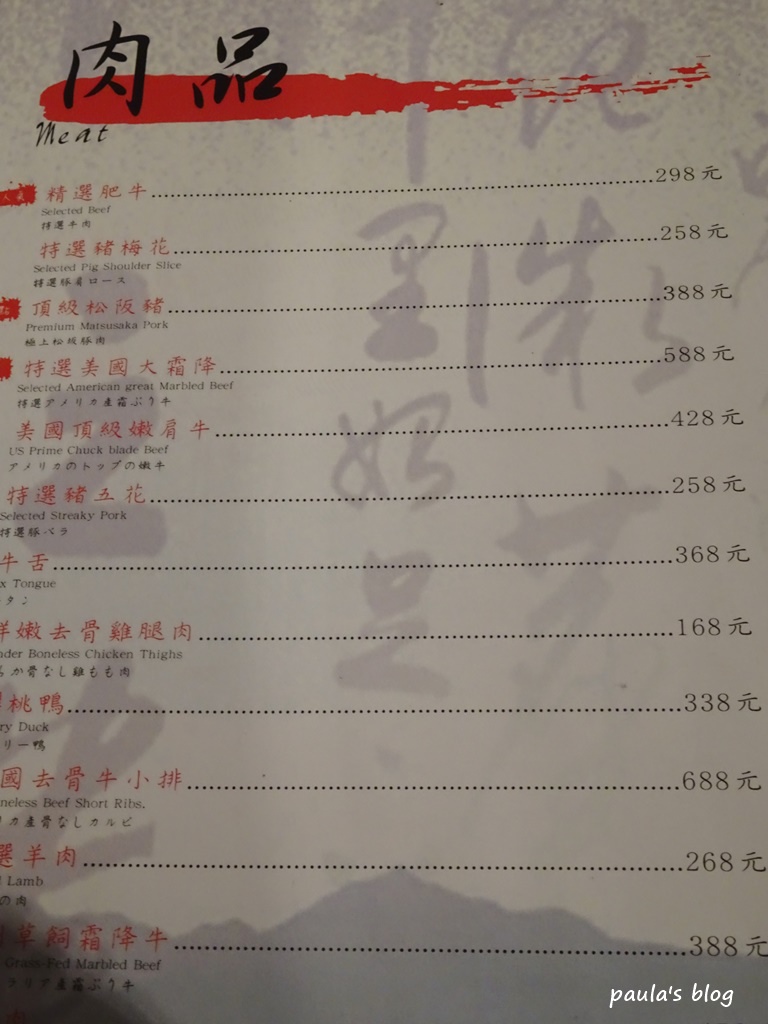 肉品
Meat
精選肥牛 298元
Selected Beef
特選牛肉
特選豬梅花 258元
Selected Pig Shoulder Slice
特選豚肩ロース
頂級松阪豬 388元
Premium Matsusaka Pork
極上松坂豚肉
特選美國大霜降 588元
Selected American great Marbled Beef
特選アメリカ産霜ぶり牛
美國頂級嫩肩牛 428元
US Prime Chuck blade Beef
アメリカのトップの嫩牛
特選豬五花 258元
Selected Streaky Pork
特選豚バラ
牛舌 368元
x Tongue
タン
嫩去骨雞腿肉 168元
nder Boneless Chicken Thighs
か骨なし雞もも肉
桃鴨 338元
ry Duck
リー鴨
國去骨牛小排 688元
neless Beef Short Ribs.
カ産骨なしカルビ
選羊肉 268元
Lamb
の肉
草飼霜降牛 388元
Grass-Fed Marbled Beef
ラリア産霜ぶり牛
paula's blog